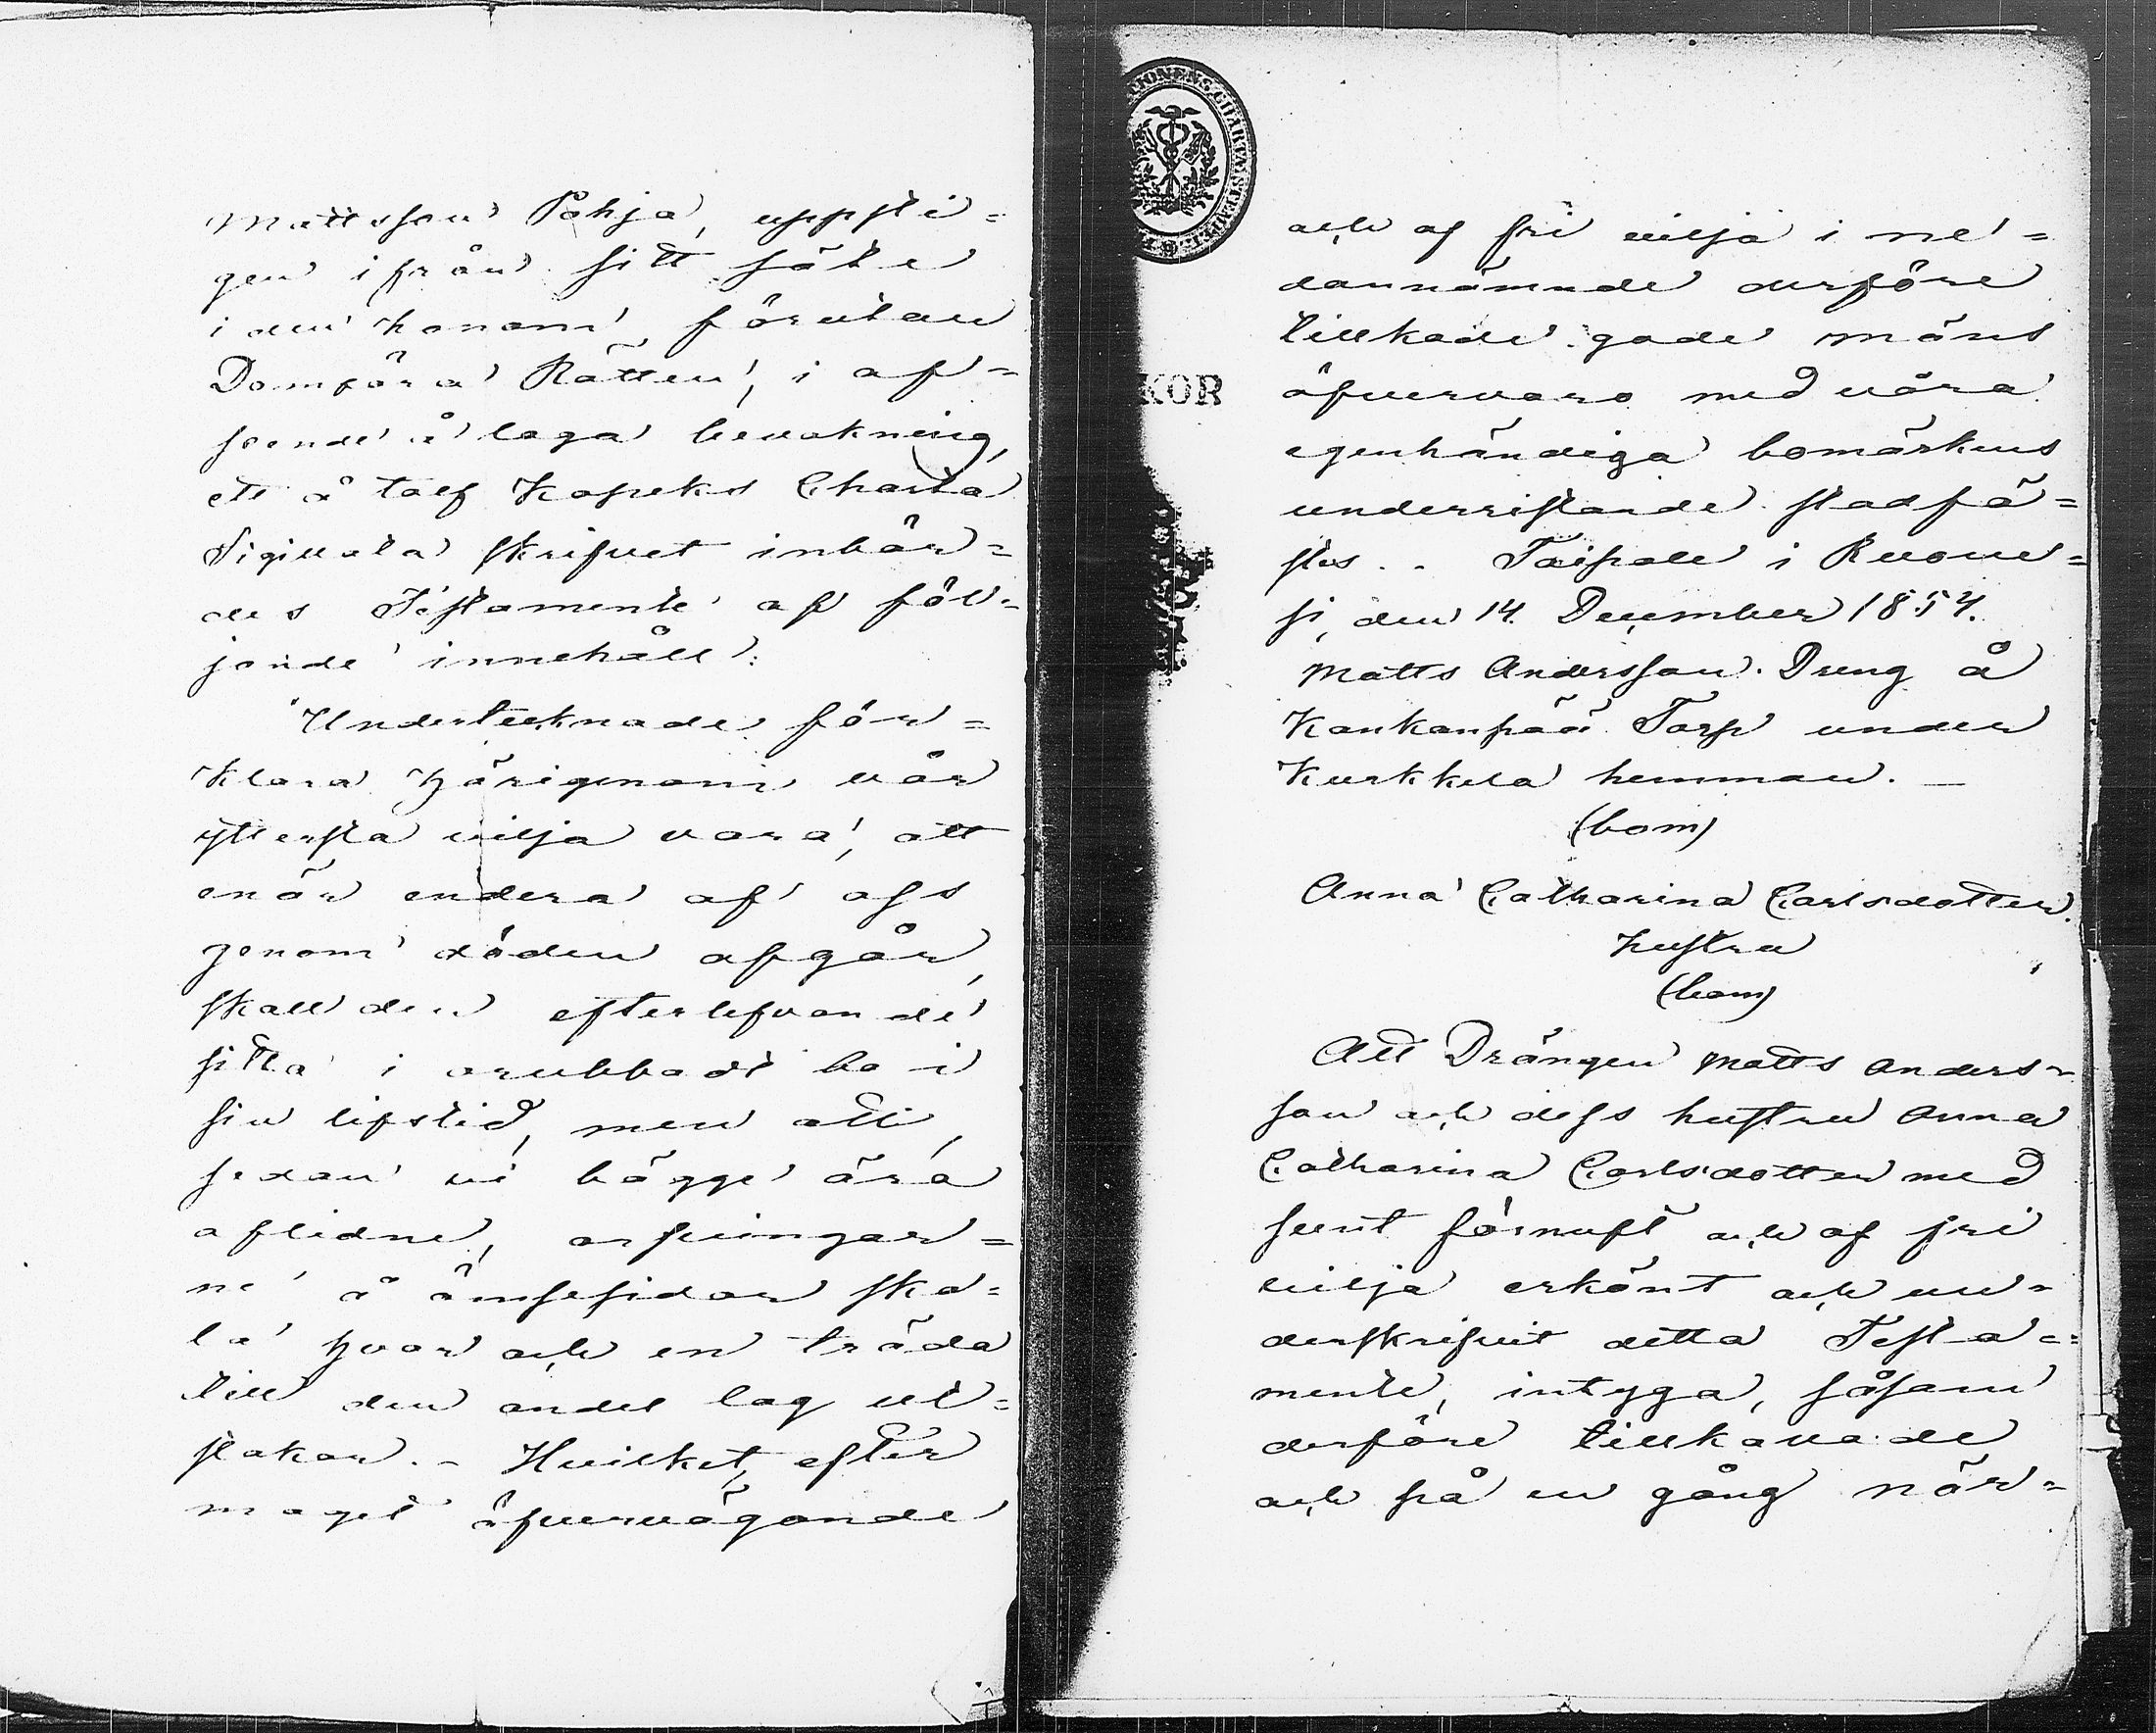 Mattsson Pohja, uppsti=
gen ifrån sitt säte
i den honom förutan
Domföra Rätten, i af=
seende å laga bevakning,
ett å tolf Kopeks Charta
Sigillata skrifvet inbör=
des Testamente af föl=
jande innehåll:
"Undertecknade för=
klara härigenom vår
yttersta vilja vara, att
enär endera af oss
genom döden afgår,
skall den efterlefvande
sitta i orubbadt bo i
sin lifstid, men att,
sedan vi bägge ära
aflidne, arfvingar=
ne å ömsesidor ska=
la hvar och en träda
till den andel lag ut=
stakar. – Hvilket, efter
moget öfvervägande
och af fri vilja i ne=
dannämnde derföre
tillkade gode mäns
öfvervaro med våra
egenhändiga bomärkens
underristande stadfä=
stes. . Taipale i Ruove=
si, den 14. December 1854.
Matts Andersson. Dreng å
Kankanpää Torp under
Kurkkela hemman. –
(bom)
Anna Catharina Carlsdotter.
hustru
(bom)
Att Drängen Matts Anders=
son och dess hustru Anna
Catharina Carlsdotter med
sunt förnuft och af fri
vilja erkänt och un=
derskrifvit detta Testa=
mente, intyga, såsom
derföre tillkallade
och på en gång när=
KOR